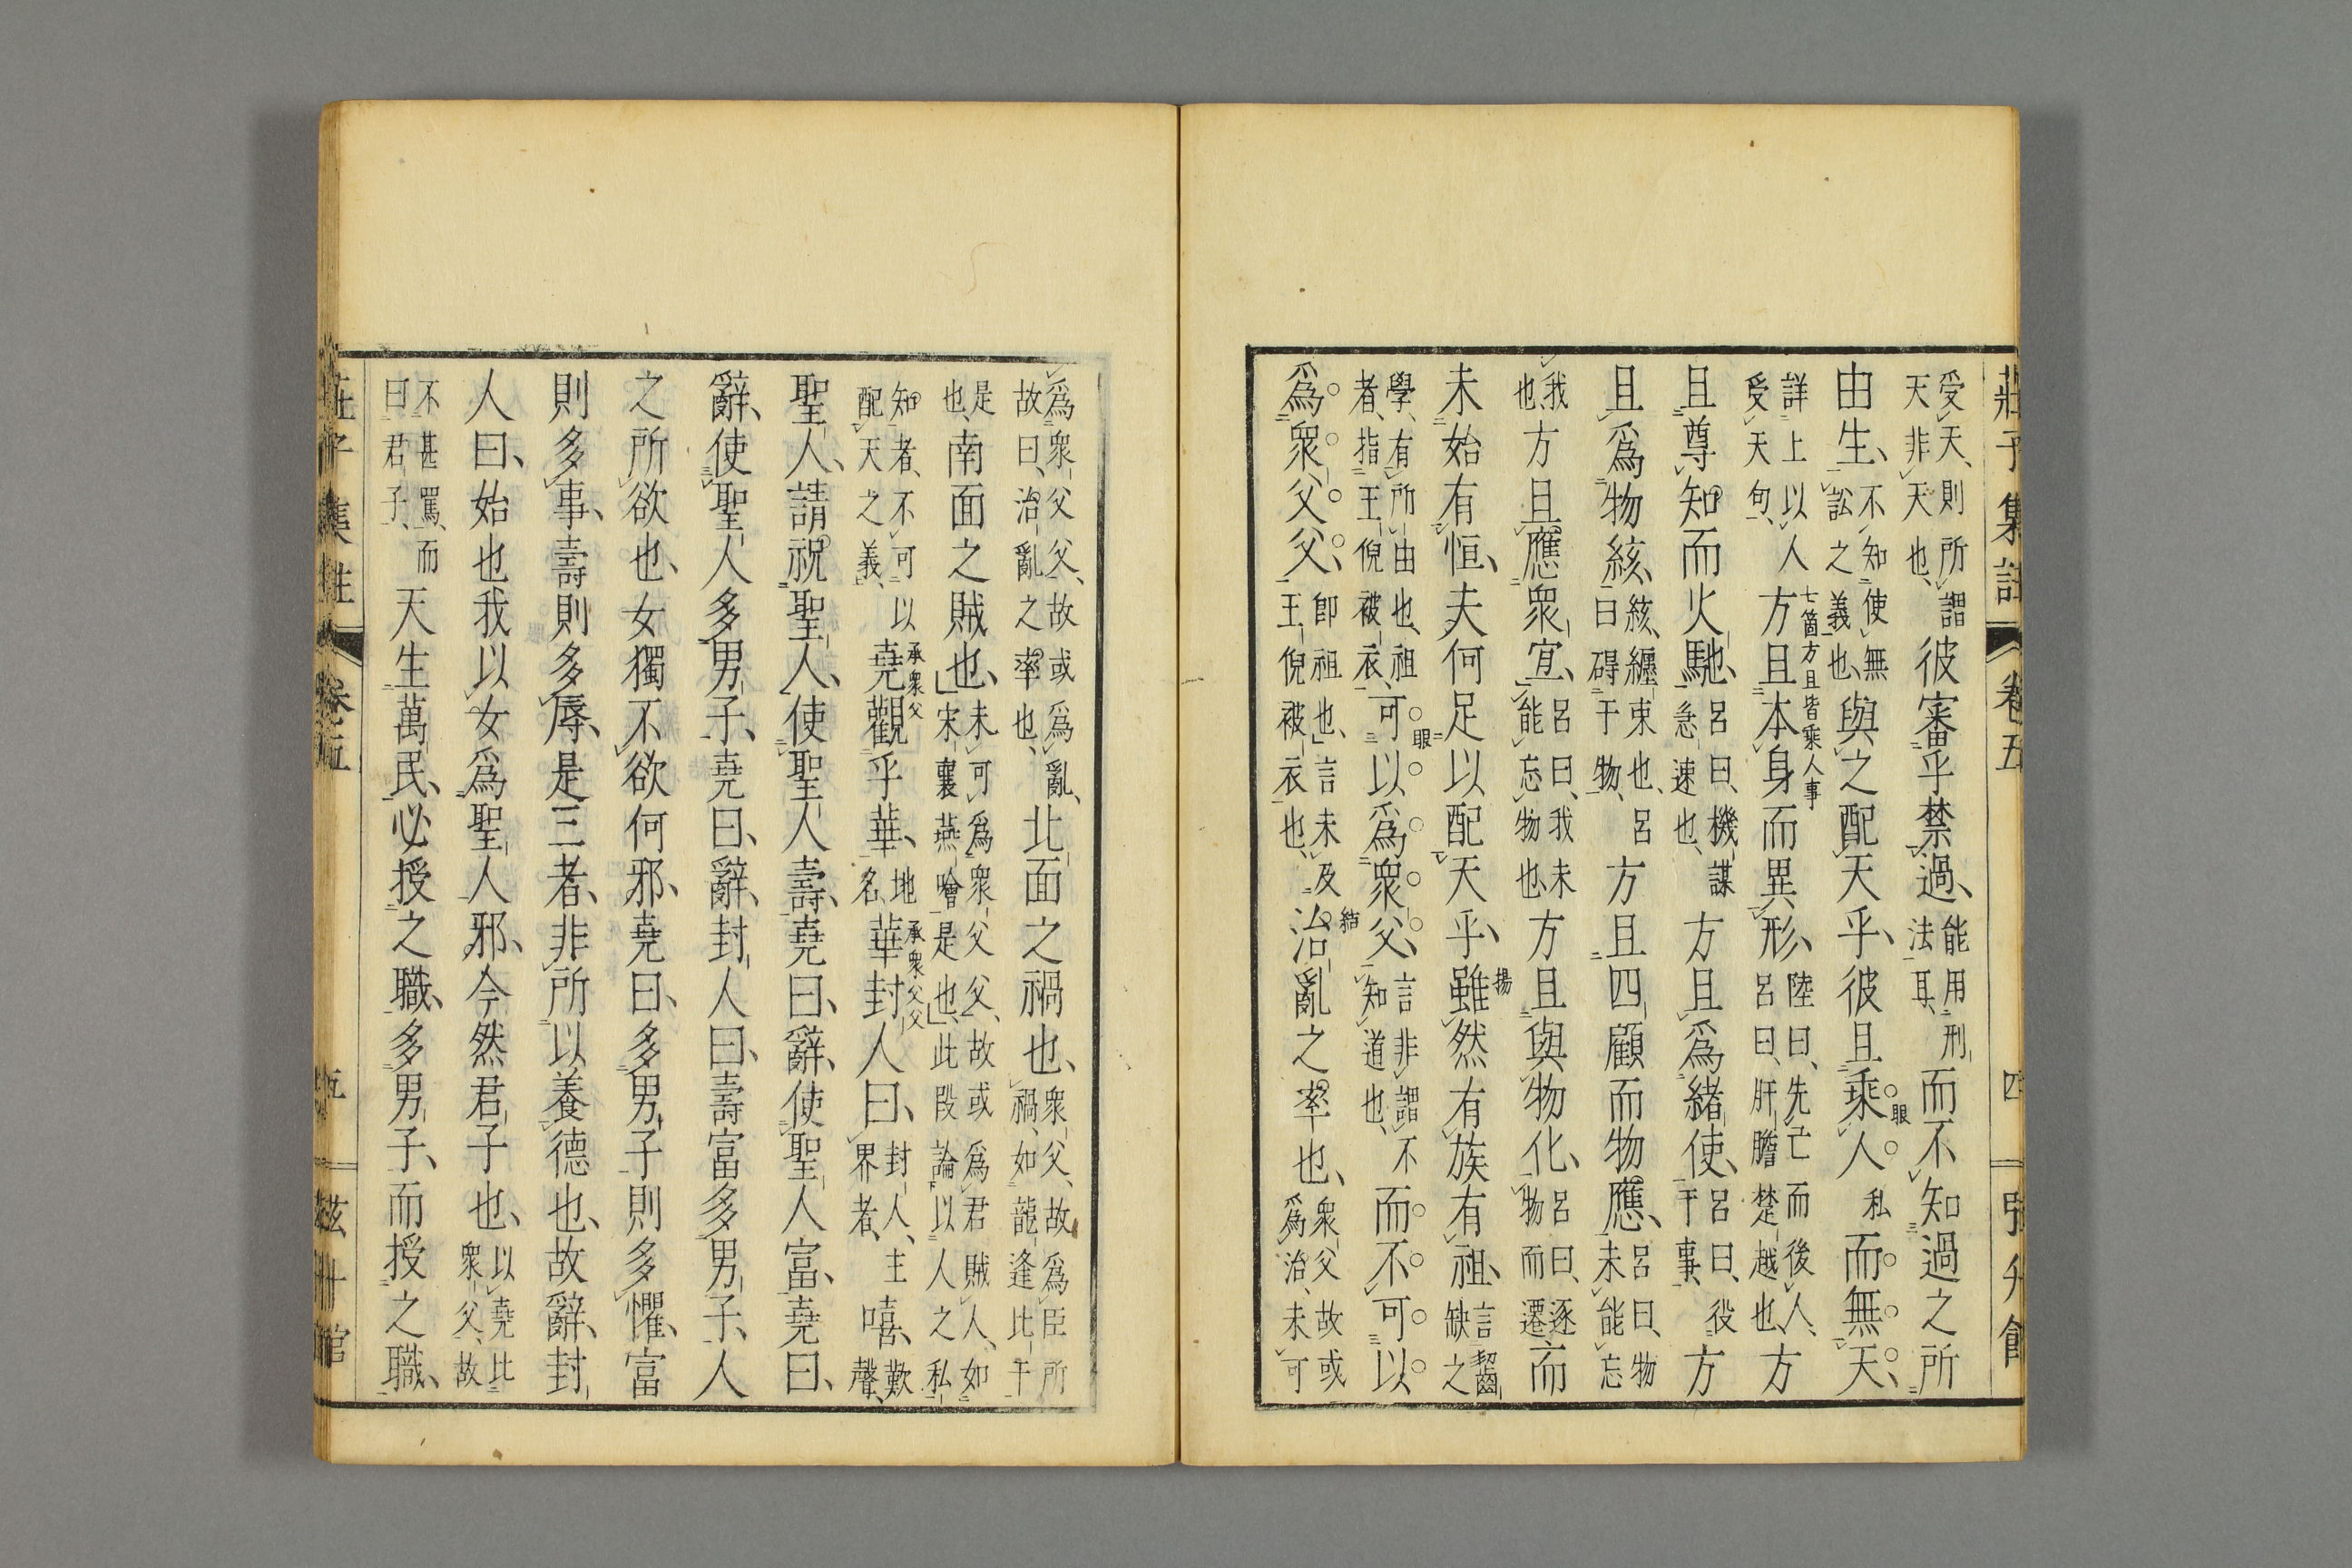 莊子集註 卷五 四
受天、則所謂天非天也、彼審乎禁過、能用刑法耳、而不知過之所
由生、不知使無訟之義也、與之配天乎、彼且乘人私而無天、
眼
詳上以人受天句、方且本身而異形、陸曰、先亡而後人、呂曰、肝膽楚越也、方
七箇方且皆乘人事
且尊知而火馳、呂曰、機謀急速也、方且爲緒使、呂曰、役于事、方
且爲物絯、絯、纏束也、呂曰碍于物、方且四顧而物應、呂曰、物未能忘
我也、方且應衆宜、呂曰、我未能忘物也、方且與物化、呂曰、逐物而遷而
未始有恒、夫何足以配天乎、雖然有族有祖、言齧缺之
揚
學、有所由也、祖者、指王倪被衣、可以爲衆父、言非謂不知道也、而不可以
眼
爲衆父父、卽祖也、言未及王倪被衣也、治亂之率也、衆父故或爲治、未可
結
爲衆父父、故或爲亂、故曰、治亂之率也、北面之禍也、衆父、故爲臣所禍如龍逢比干
是也、南面之賊也、未可爲衆父父、故或爲君賊人、人、如宋襄燕噲是也、此段論以人之私
知者、不可以配天之義、堯觀乎華、地名、華封人曰、封人、主界者、嘻、歎聲、
承衆父
承衆父父
聖人、請祝聖人、使聖人壽、堯曰、辭、使聖人富、堯曰、
辭、使聖人多男子、堯曰、辭、封人曰、壽富多男子、人
之所欲也、女獨不欲何邪、堯曰、多男子則多懼、富
則多事、壽則多辱、是三者、非所以養德也、故辭、封
人曰、始也我以女爲聖人邪、今然君子也、以堯比衆父、故
不甚罵、而曰君子、天生萬民、必授之職、多男子、而授之職、
莊子集註 卷五 五